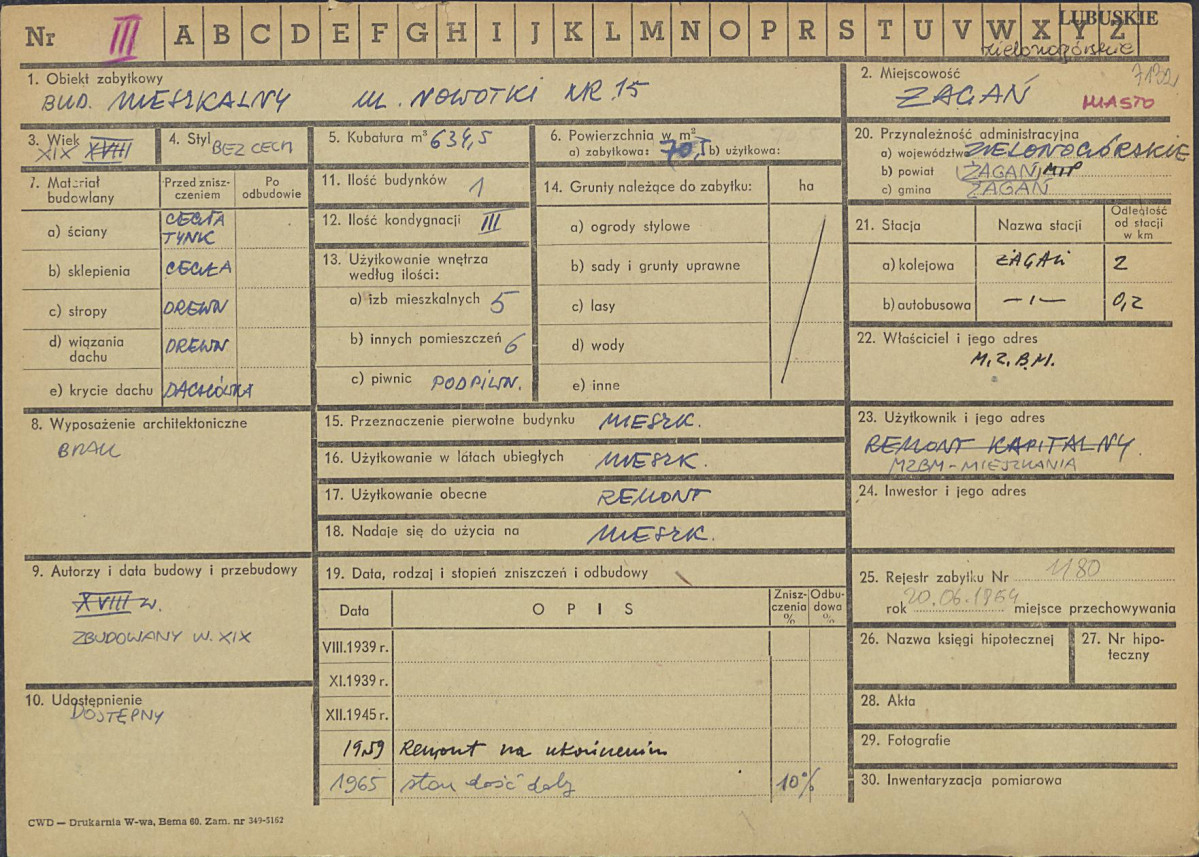 Nr III A B C D E F G H I J K L M N O P R S T U V W X Y Z
LUBUSKIE
zielonogórskie
1. Obiekt zabytkowy
BUD. MIESZKALNY UL. NOWOTKI NR 15
2. Miejscowość
ŻAGAŃ MIASTO
3. Wiek
XIX XVIII
4. Styl BEZ CECH
5. Kubatura m³ 634,5
6. Powierzchnia w m²
a) zabytkowa: 70,5 b) użytkowa:
20. Przynależność administracyjna
a) województwo ZIELONOGÓRSKIE
b) powiat ŻAGAŃ
c) gmina ŻAGAŃ
7. Materiał budowlany
Przed znisz-
czeniem
Po
odbudowie
a) ściany CEGŁA
TYNK
b) sklepienia CEGŁA
c) stropy DREWN
d) wiązania
dachu DREWN
e) krycie dachu DACHÓWKA
11. Ilość budynków 1
12. Ilość kondygnacji III
13. Użytkowanie wnętrza
według ilości:
a) izb mieszkalnych 5
b) innych pomieszczeń 6
c) piwnic PODPIWN.
14. Grunty należące do zabytku: ha
a) ogrody stylowe
b) sady i grunty uprawne
c) lasy
d) wody
e) inne
21. Stacja Nazwa stacji
Odległość
od stacji
w km
a) kolejowa ŻAGAŃ 2
b) autobusowa — ı — 0,2
22. Właściciel i jego adres
M.Z.B.M.
8. Wyposażenie architektoniczne
BRAK
15. Przeznaczenie pierwotne budynku MIESZK.
16. Użytkowanie w latach ubiegłych MIESZK.
17. Użytkowanie obecne REMONT
18. Nadaje się do użycia na MIESZK.
23. Użytkownik i jego adres
REMONT KAPITALNY
MZBM - MIESZKANIA
24. Inwestor i jego adres
9. Autorzy i data budowy i przebudowy
XVIII w.
ZBUDOWANY W. XIX
10. Udostępnienie
DOSTĘPNY
19. Data, rodzaj i stopień zniszczeń i odbudowy
Data OPIS
Znisz-
czenia
%
Odbu-
dowa
%
VIII.1939 r.
XI.1939 r.
XII.1945 r.
1959 Remont na ukończeniu
1965 stan dość dobry 10%
25. Rejestr zabytku Nr 1180
rok 20.06.1964 miejsce przechowywania
26. Nazwa księgi hipotecznej
27. Nr hipo-
teczny
28. Akta
29. Fotografie
30. Inwentaryzacja pomiarowa
CWD — Drukarnia W-wa, Bema 60. Zam. nr 349-5162